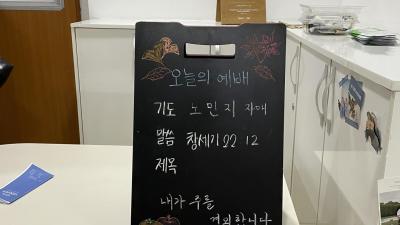 오늘의 예배
기도 노민지 자매
말씀 창세기 22 12
제목
내가 루를
경외합니다